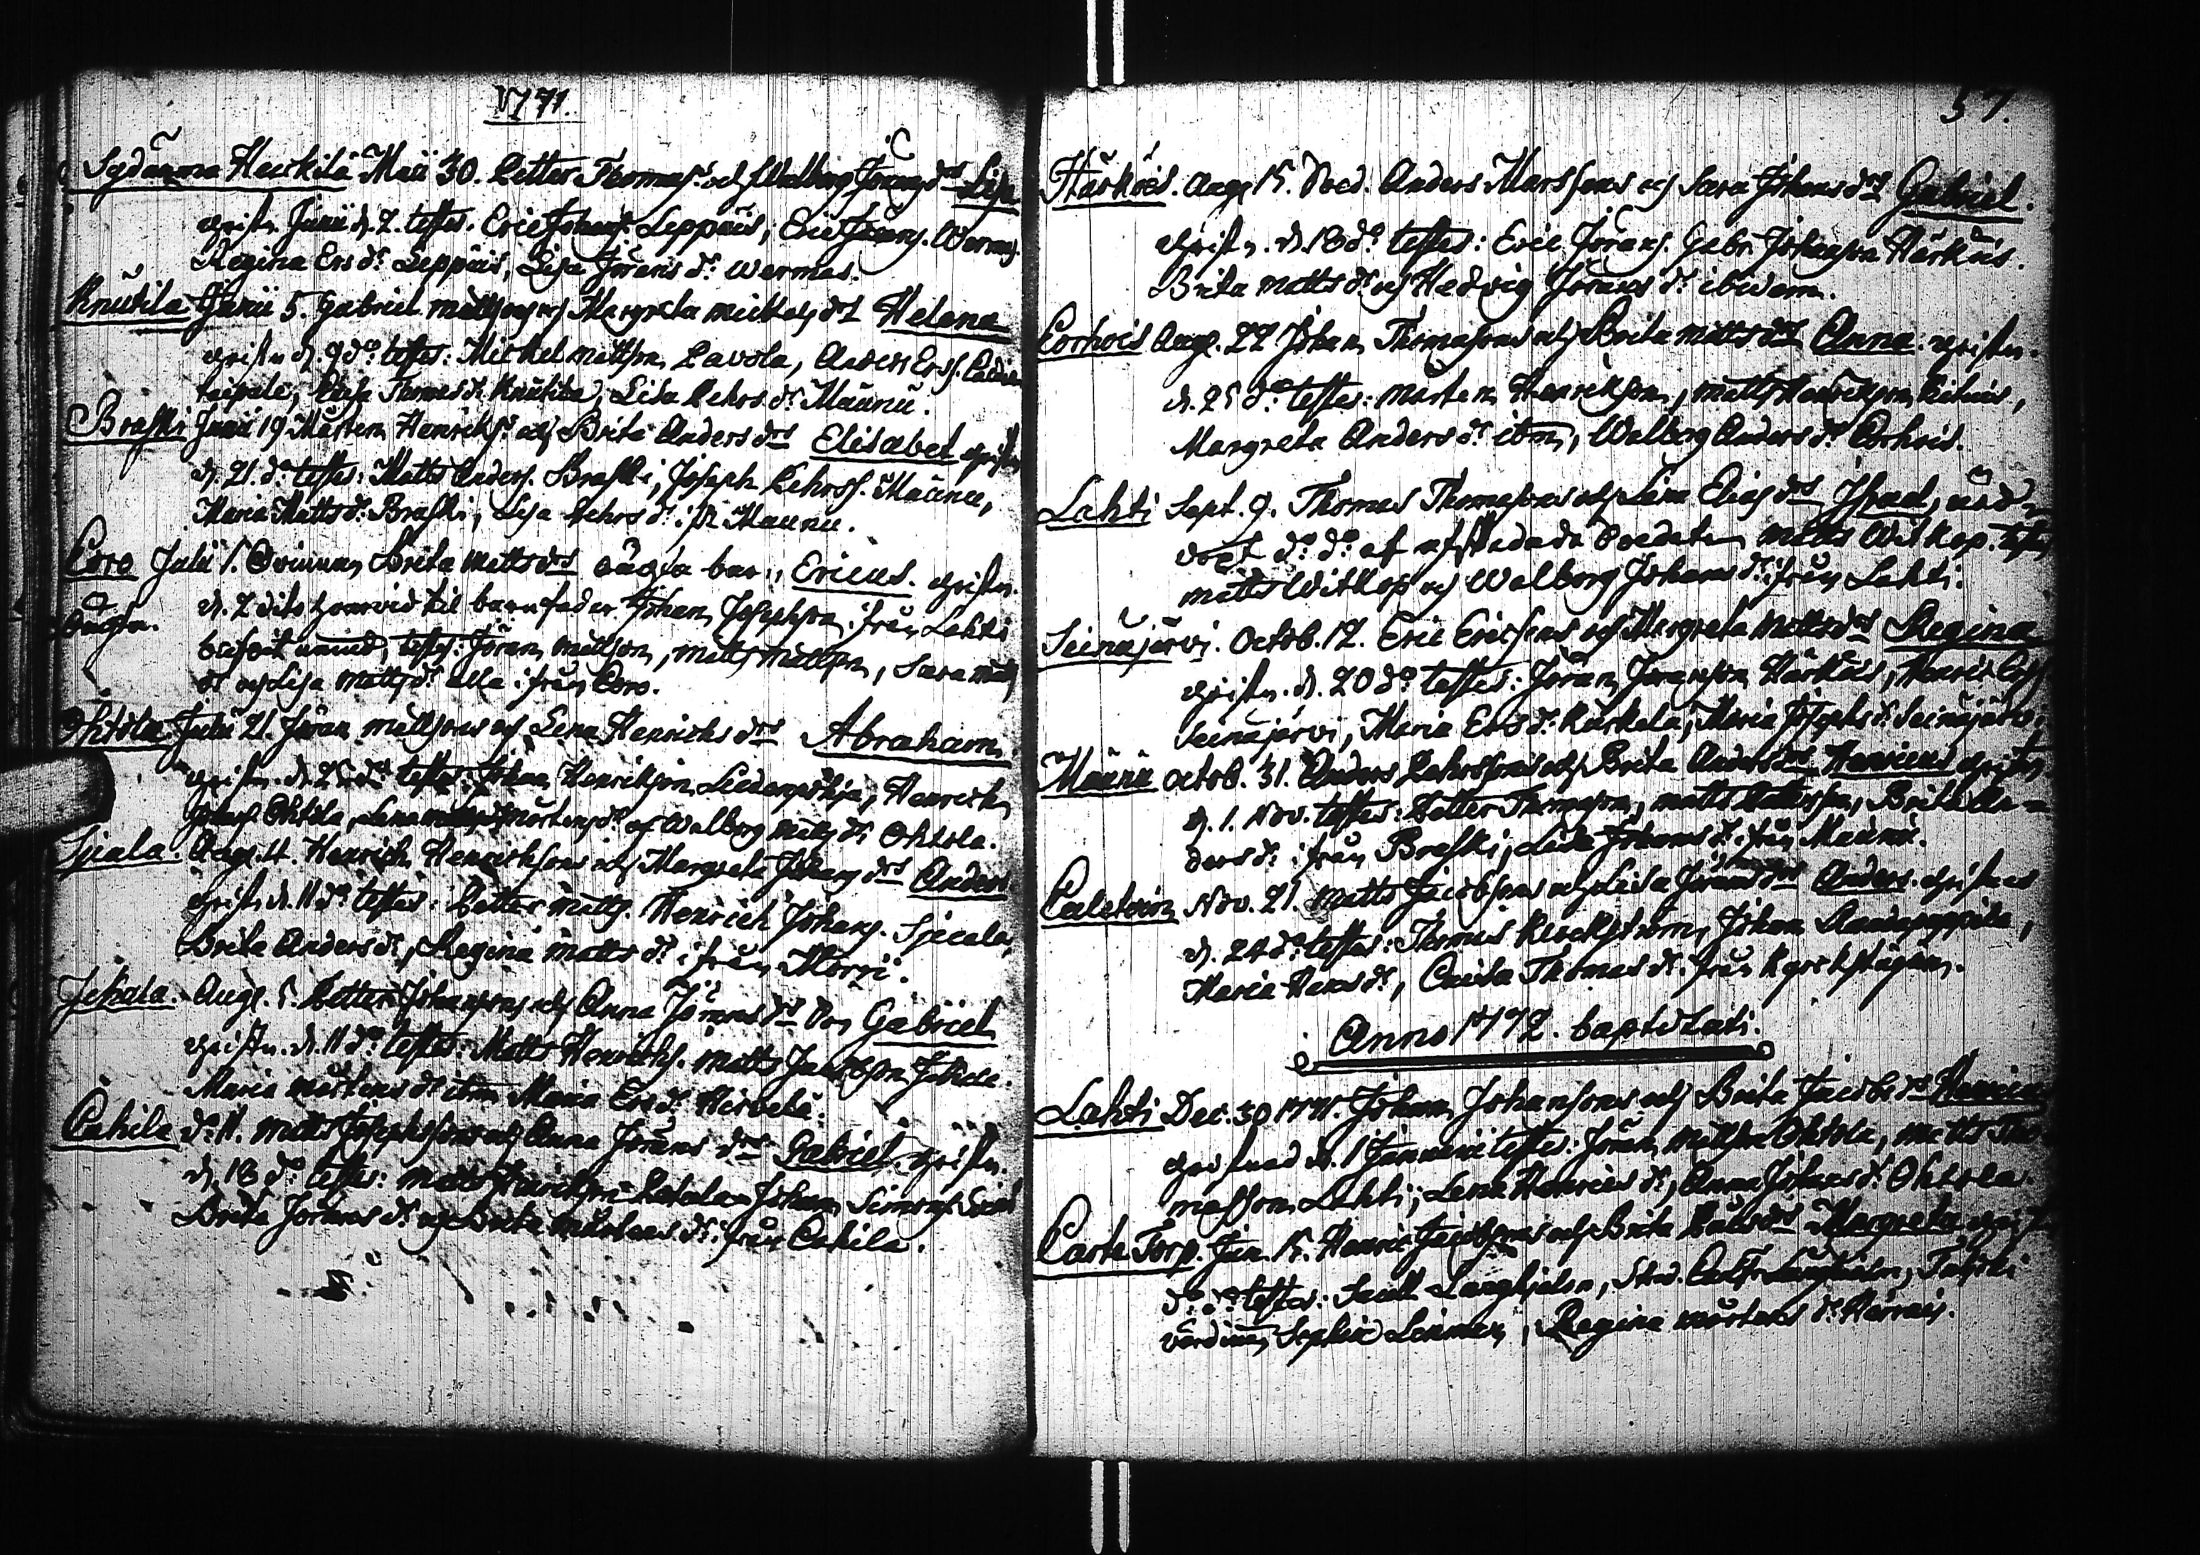 1771.
Sydänma Heickilä Maii 30. Petter Thomas s. och Walborg Jörans drs Lisa
christn. Junii d. 2. testes. Eric Johans. Leppäis, Eric Jörans. Wermas.
Regina Ers dr. Leppäis, Lisa Jörans dr. Wermas.
Knutila Junii 5. Gabriel Mattsons och Margreta Mickels drs Helena
christn d. 9 do testes: Mickel Mattson Lavola, Anders Erss.
taipale, Lisa Thomas dr. Knutila, Lisa Pehrs dr. Maunu.
Braski Junii 19 Mårten Henrichs. och Brita Anders drs Elisabet christn
d. 21. do testes: Matts Anders. Braski, Joseph Pehrss. Maunu,
Maria Matts dr. Braski, Lisa Pehrs dr. Maunu.
Coro Julii 1. Qvinnan Brita Matts drs oägta barn, Ericus. christn.
oägta. d. 2 dito hvarvid til barnfader Johan Josephson ifrån Lahti
testes: Jöran Mattson, Matts Mattson, Sara Matts
dr och Lisa Matts dr. alla ifrån Coro.
Ohtola Julii 21. Jöran Mattsons och Lena Henrichs drs Abraham
christn. d. 25 do testes: Johan Henrikson Liedenpohja, Henrich
Ohtola, Lena Mårtens dr och Walborg Matts dr. Ohtola.
Sjicala. Aug. 4. Henrich Henrichsons och Margreta Johans drs Anders
christn. d. 11 do testes: Petter Matts. Henrich Johans. Sjicala,
Brita Anders dr., Regina Matts dr. ifrån Norri.
Jekala. Aug. 5. Petter Johansons och Anna Jörans drs son Gabriel
christn. d. 11 do testes: Matts Henrichs. Matts Jacobson Jekala.
Maria Mårtens dr ibm Maria Ers dr. Hirvelä.
Cahila do 11. Matts Josephsons och Anna Jörans drs Gabriel christn.
d. 18 do testes: Matts Henrikson Johan Simons.
Brita Jörans dr. och Brita Mårtens dr. ifrån Cahila.
57.
Härköis. Aug. 15. Anders Marssons och Sara Johans drs Gabriel.
christn. d. 18 do testes: Eric Jörans. Gabr. Johanson Härköis.
Brita Matts dr. och Hedvig Jörans dr. ibidem.
Corhois Aug. 22 Johan Thomasons och Brita Matts drs Anna. christn.
d. 25 do testes: Mårten Henrikson, Matts Henrikson
Margreta Anders dr. ibm, Walborg Anders dr. Corhois.
Lahti Sept. 9. Thomas Thomasons och Lisa Elias drs
do do af afskedade Soldaten Matts Witkop. testes
Matts Witkop och Walborg Johans dr. ifrån Lahti.
Seinäjärvi. Octob. 17. Eric Ericsons och Margreta Matts drs Regina
christn. d. 20 do testes: Jöran Jöranson Härköis, Henric
Seinäjärvi, Maria Ers dr. Kurkela, Maria Josephs dr. Seinäjärvi.
Maunu Octob. 31. Anders Pehrssons och Brita Anders drs Henricus christn
d. 1. Nov. testes: Petter Thomason, Matts Brita An-
ders dr. ifrån Braski, Lisa Johans dr. ifrån Maunu.
Caletoin Nov. 21. Matts Jacobsons och Lisa Jörans drs Anders. christnes
d. 24 do testes: Thomas Klockström, Johan
Maria Hans dr., Caisa Thomas dr. från Kyrckstugan.
Anno 1772. baptizati.
Lahti Dec. 30 1771. Johan Johansons och Brita Jacobs drs Henricus
christnad d. 1 Januarii testes: Jöran Mattson Ohtola, Matts Tho-
masson Lahti, Lena Henrics dr., Anna Johans dr. Ohtola.
Carta Torp. Jan. 15. Henric Jacobsons och Brita drs Margreta christn
do do testes: Langhjelm, Stud. Langhielm,
värdinnan Sophia, Regina Mårtens dr.